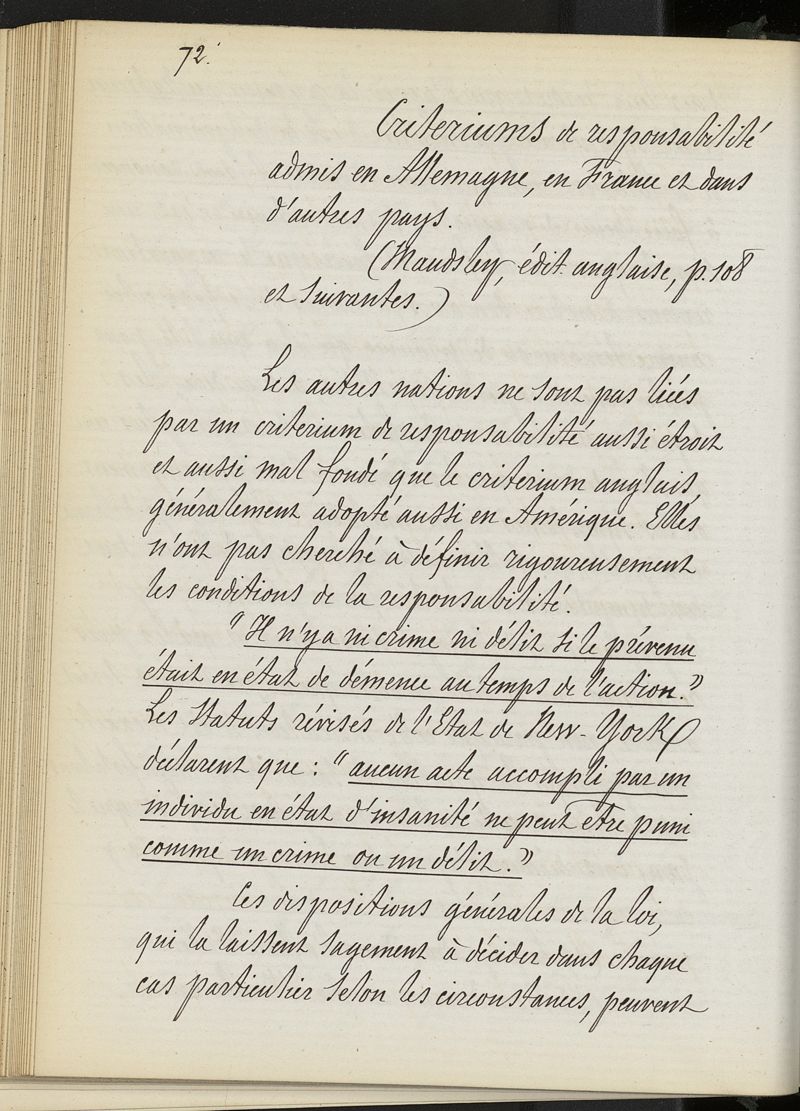 72.
Criteriums de responsabilité
admis en Allemagne, en France et dans
d'autres pays.
(Maudsley, édit. anglaise, p. 108
et suivantes.)
Les autres nations ne sont pas liées
par un criterium de responsabilité aussi étroit
et aussi mal fondé que le criterium anglais,
généralement adopté aussi en Amérique. Elles
n'ont pas cherché à définir rigoureusement
les conditions de la responsabilité.
"Il n'y a ni crime ni délit si le prévenu
était en état de démence au temps de l'action."
Les Statuts révisés de l'Etat de New-York
déclarent que : "aucun acte accompli par un
individu en état d'insanité ne peut être puni
comme un crime ou un délit."
Ces dispositions générales de la loi,
qui la laissent sagement à décider dans chaque
cas particulier selon les circonstances, peuvent